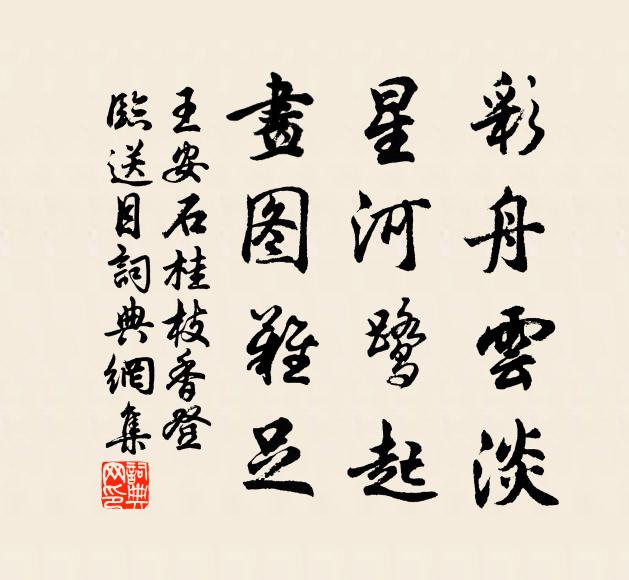 彩舟雲淡
星河鷺起
畫图難足
王安石桂枝香登
臨送目詞典網集
詞典
网印